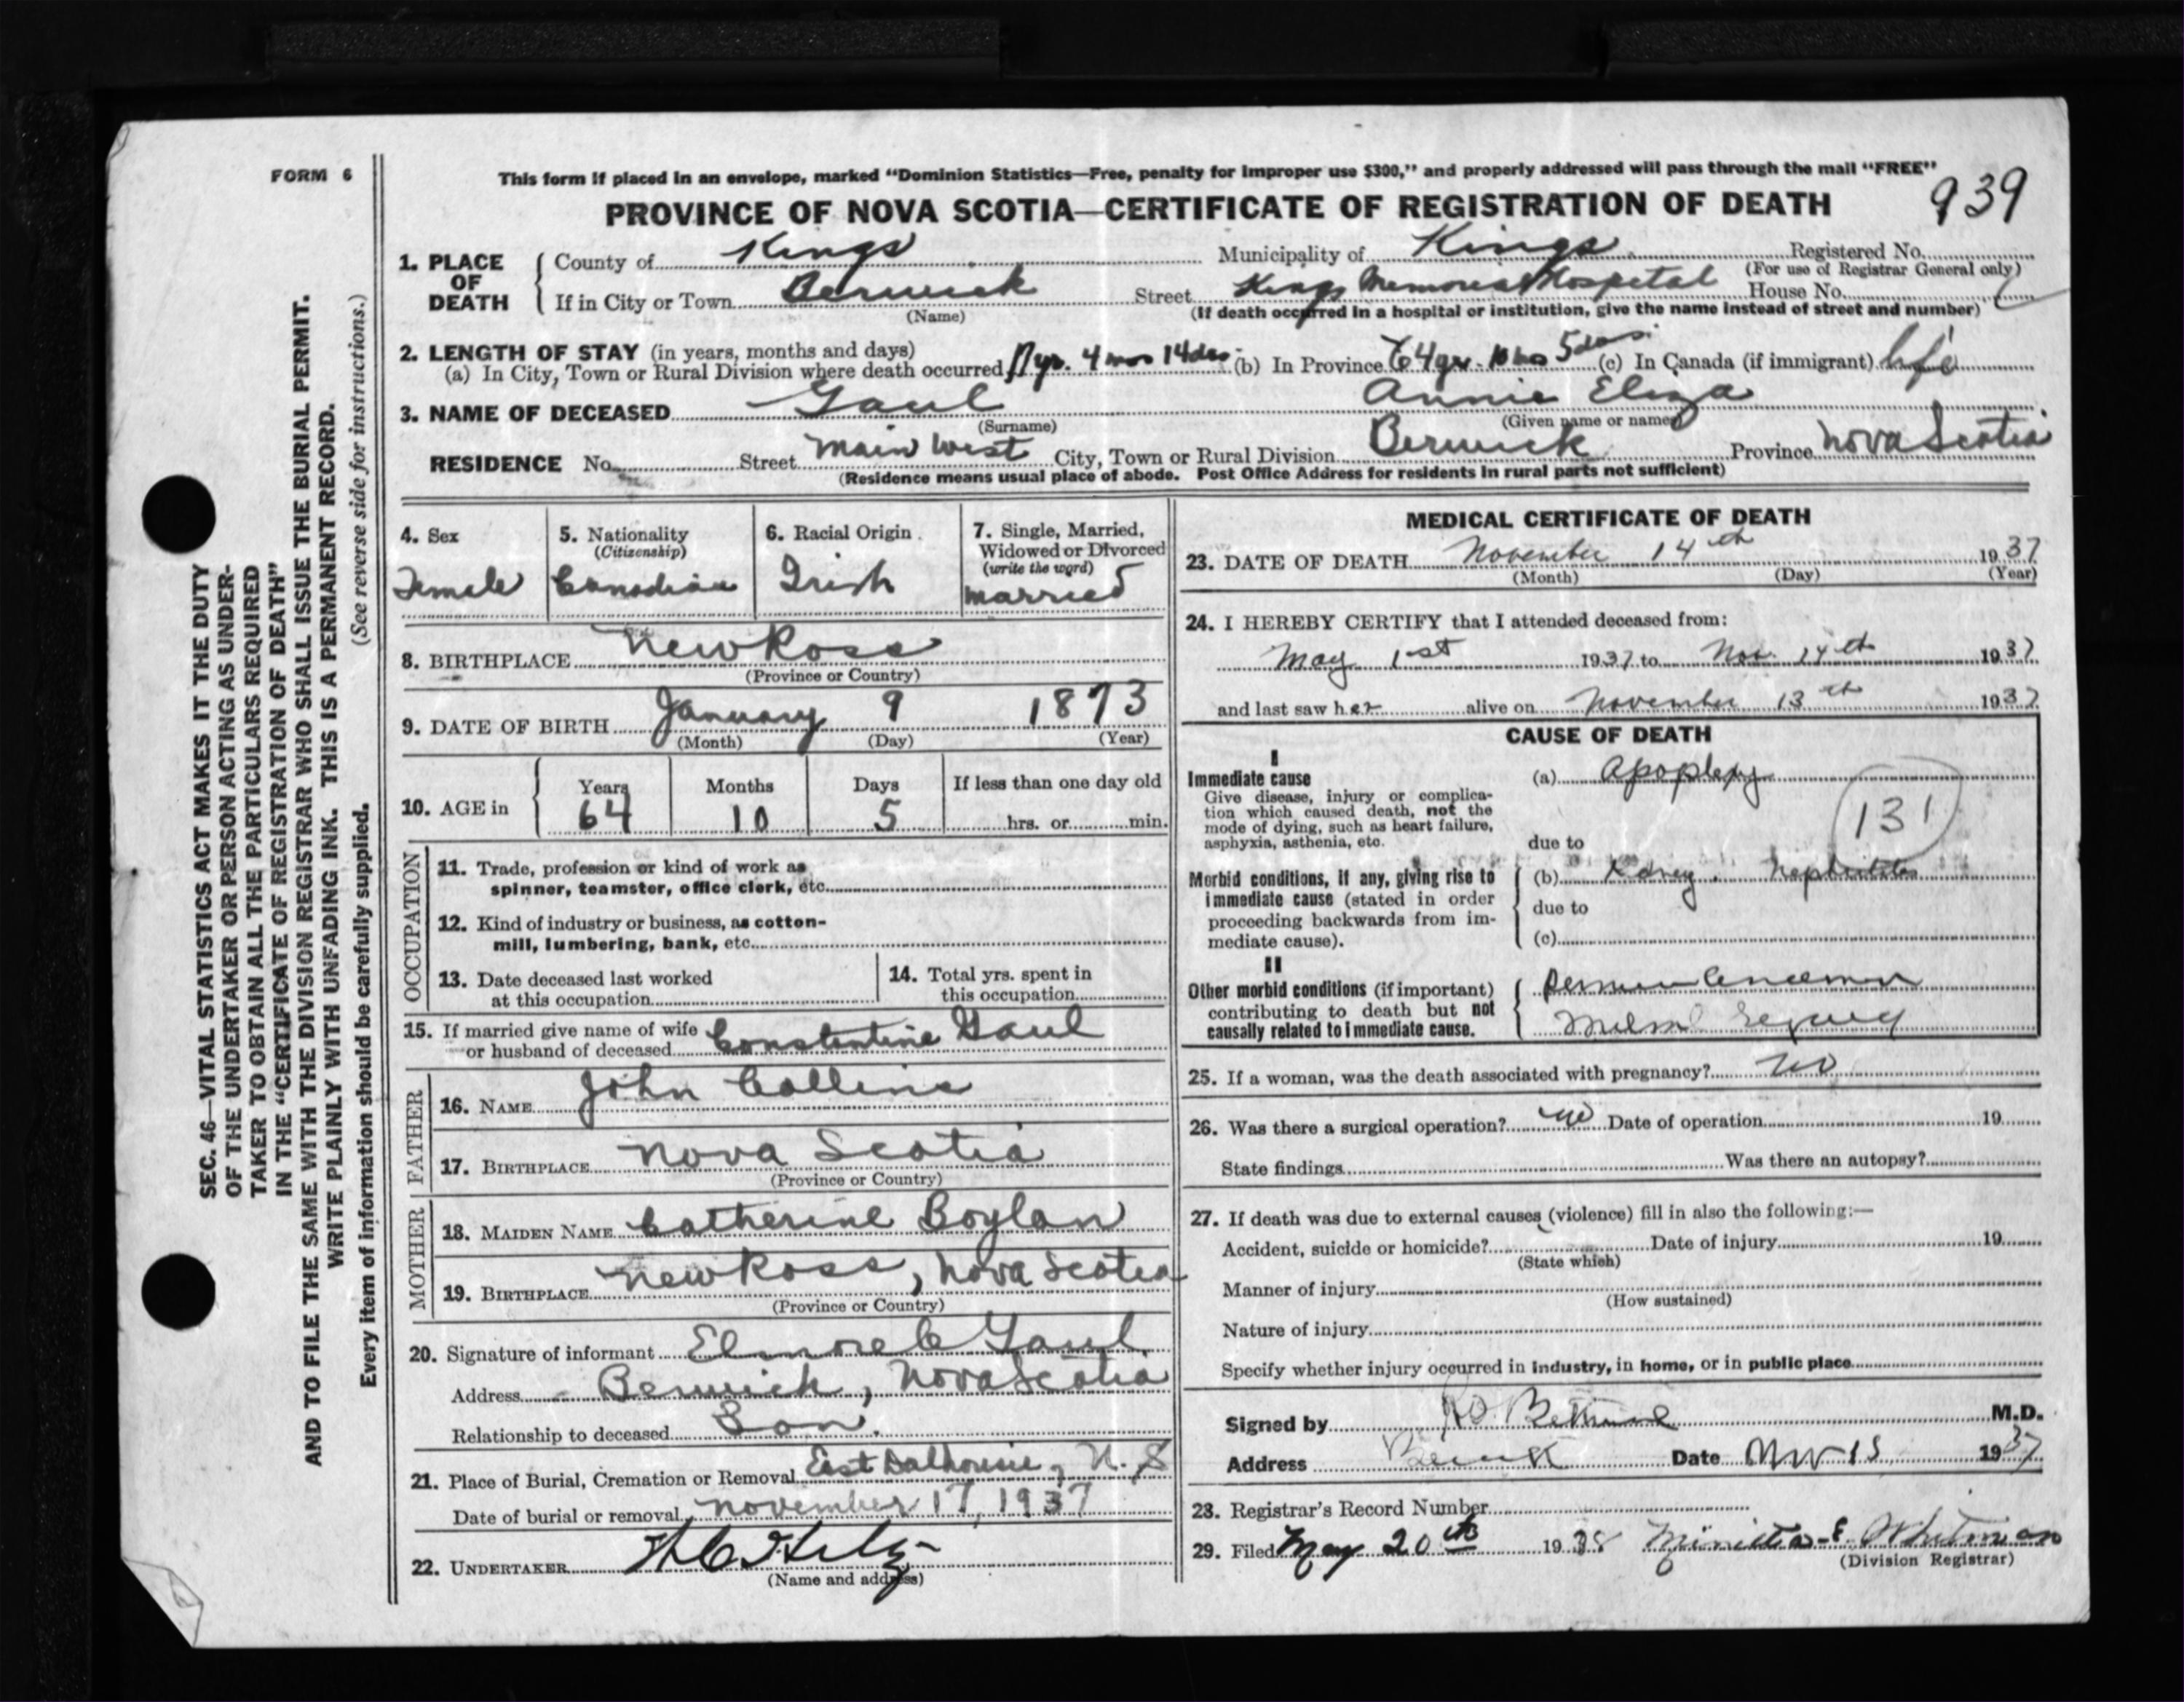 FORM 6
This form if placed in an envelope, marked "Dominion Statistics—Free, penalty for improper use $300," and properly addressed will pass through the mail "FREE"
PROVINCE OF NOVA SCOTIA—CERTIFICATE OF REGISTRATION OF DEATH 939
1. PLACE OF DEATH County of Kings Municipality of Kings Registered No.
(For use of Registrar General only)
If in City or Town Berwick Street Kings Memorial Hospital House No.
(Name) (If death occurred in a hospital or institution, give the name instead of street and number)
2. LENGTH OF STAY (in years, months and days)
(a) In City, Town or Rural Division where death occurred yr. 4 mos 14 das (b) In Province 64 yr. 10 mos 5 das (c) In Canada (if immigrant) life
3. NAME OF DECEASED Gaul Annie Eliza
(Surname) (Given name or names)
RESIDENCE No. Street Main West City, Town or Rural Division Berwick Province Nova Scotia
(Residence means usual place of abode. Post Office Address for residents in rural parts not sufficient)
4. Sex 5. Nationality (Citizenship) 6. Racial Origin 7. Single, Married, Widowed or Divorced (write the word)
Female Canadian Irish Married
8. BIRTHPLACE New Ross
(Province or Country)
9. DATE OF BIRTH January 9 1873
(Month) (Day) (Year)
10. AGE in Years Months Days If less than one day old
64 10 5 hrs. or min.
OCCUPATION
11. Trade, profession or kind of work as
spinner, teamster, office clerk, etc.
12. Kind of industry or business, as cotton-
mill, lumbering, bank, etc.
13. Date deceased last worked
at this occupation
14. Total yrs. spent in
this occupation
15. If married give name of wife
or husband of deceased Constentine Gaul
FATHER
16. NAME John Collins
17. BIRTHPLACE Nova Scotia
(Province or Country)
MOTHER
18. MAIDEN NAME Catherine Boylan
19. BIRTHPLACE New Ross, Nova Scotia
(Province or Country)
20. Signature of informant Elmore C Gaul
Address Berwick, Nova Scotia
Relationship to deceased Son.
21. Place of Burial, Cremation or Removal East Dalhousie, N.S
Date of burial or removal November 17, 1937
22. UNDERTAKER
(Name and address)
MEDICAL CERTIFICATE OF DEATH
23. DATE OF DEATH November 14th 1937
(Month) (Day) (Year)
24. I HEREBY CERTIFY that I attended deceased from:
May 1st 1937 to Nov. 14th 1937
and last saw her alive on November 13th 1937
CAUSE OF DEATH
I
Immediate cause (a) Apoplexy
Give disease, injury or complica-
tion which caused death, not the
mode of dying, such as heart failure,
asphyxia, asthenia, etc. due to
131
Morbid conditions, if any, giving rise to
immediate cause (stated in order
proceeding backwards from im-
mediate cause).
(b) Kidney. Nephritis
due to
(c)
II
Other morbid conditions (if important)
contributing to death but not
causally related to immediate cause.
25. If a woman, was the death associated with pregnancy? No
26. Was there a surgical operation? no Date of operation 19
State findings Was there an autopsy?
27. If death was due to external causes (violence) fill in also the following:—
Accident, suicide or homicide? Date of injury 19
(State which)
Manner of injury
(How sustained)
Nature of injury
Specify whether injury occurred in industry, in home, or in public place
Signed by Bethune M.D.
Address Berwick Date Nov 15 1937
28. Registrar's Record Number
29. Filed May 20th 1938 E Whitman
(Division Registrar)
SEC. 46—VITAL STATISTICS ACT MAKES IT THE DUTY
OF THE UNDERTAKER OR PERSON ACTING AS UNDER-
TAKER TO OBTAIN ALL THE PARTICULARS REQUIRED
IN THE "CERTIFICATE OF REGISTRATION OF DEATH"
AND TO FILE THE SAME WITH THE DIVISION REGISTRAR WHO SHALL ISSUE THE BURIAL PERMIT.
WRITE PLAINLY WITH UNFADING INK. THIS IS A PERMANENT RECORD.
(See reverse side for instructions.)
Every item of information should be carefully supplied.